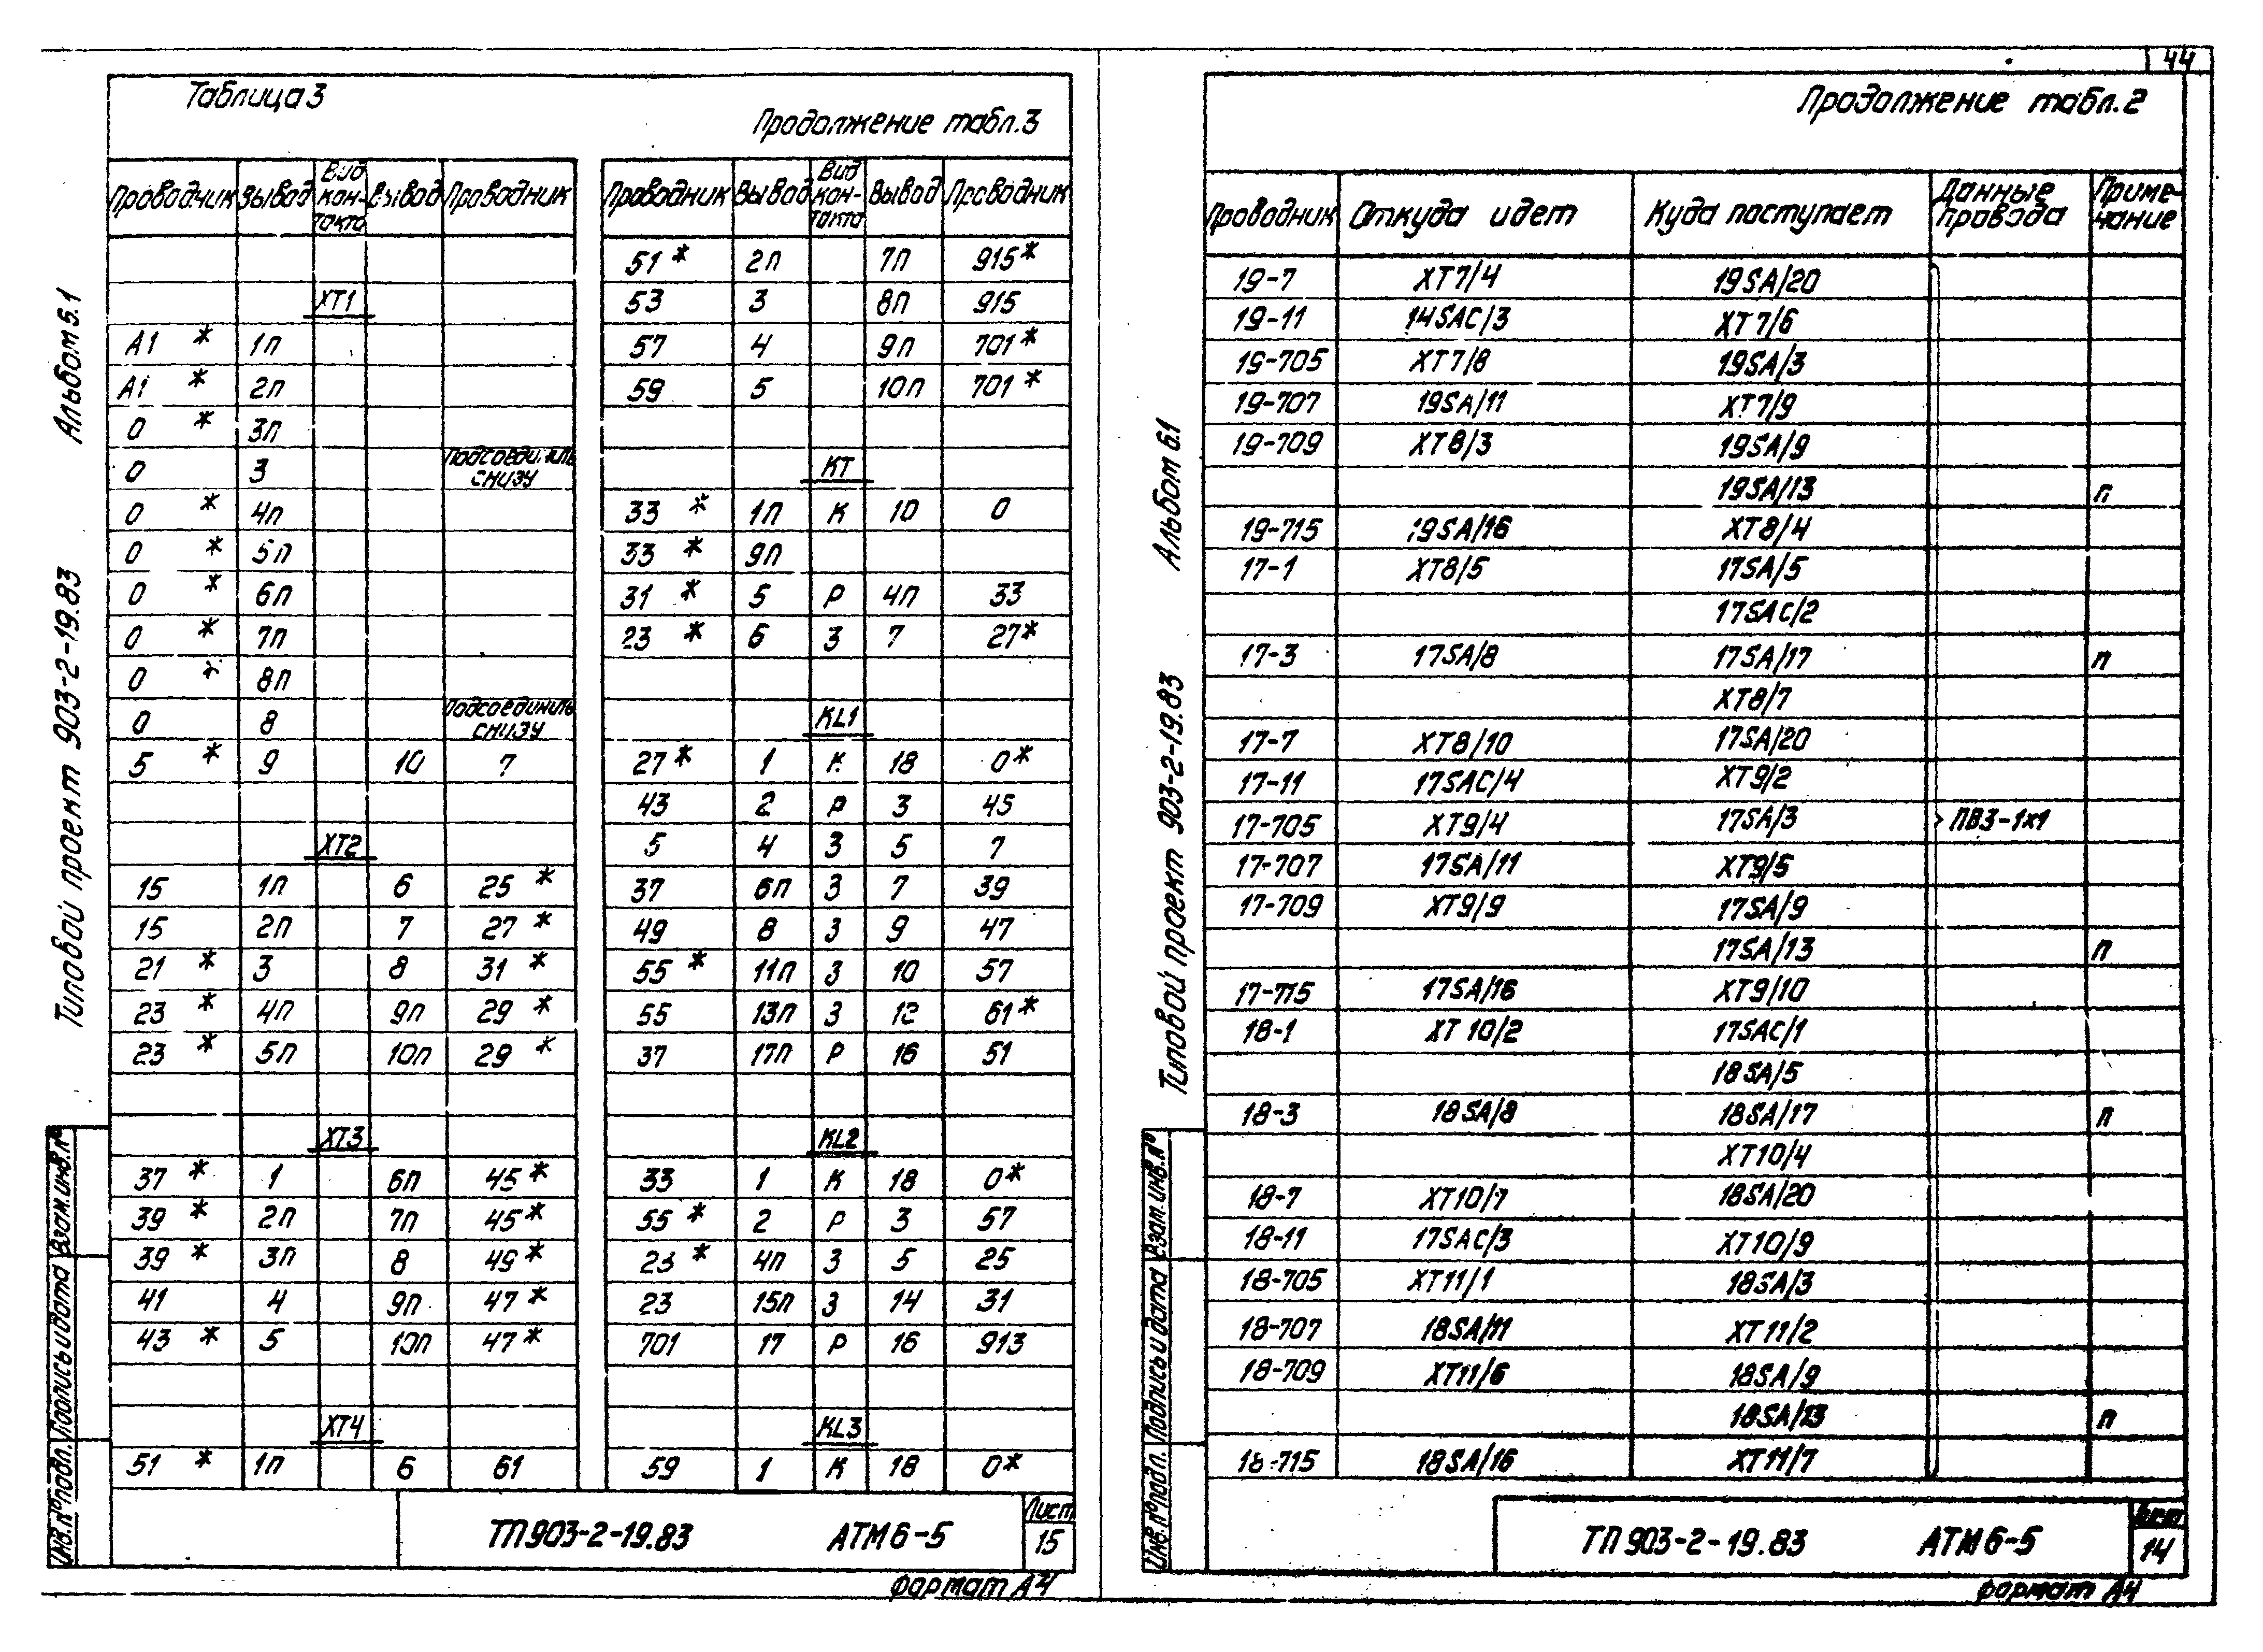 44
Таблица 3
Продолжение табл.3
Проводник Вывод Вид контакта Вывод Проводник
ХТ1
А1 * 1п
А1 * 2п
0 * 3п
0 3 Подсоединить снизу
0 * 4п
0 * 5п
0 * 6п
0 * 7п
0 * 8п
0 8 Подсоединить снизу
5 * 9 10 7
ХТ2
15 1п 6 25 *
15 2п 7 27 *
21 * 3 8 31 *
23 * 4п 9п 29 *
23 * 5п 10п 29 *
ХТ3
37 * 1 6п 45 *
39 * 2п 7п 45 *
39 * 3п 8 49 *
41 4 9п 47 *
43 * 5 10п 47 *
ХТ4
51 * 1п 6 61
Проводник Вывод Вид контакта Вывод Проводник
51 * 2п 7п 915 *
53 3 8п 915
57 4 9п 701 *
59 5 10п 701 *
КТ
33 * 1п К 10 0
33 * 9п
31 * 5 Р 4п 33
23 * 6 З 7 27 *
KL1
27 * 1 К 18 0 *
43 2 Р 3 45
5 4 З 5 7
37 6п З 7 39
49 8 З 9 47
55 * 11п З 10 57
55 13п З 12 61 *
37 17п Р 16 51
KL2
33 1 К 18 0 *
55 * 2 Р 3 57
23 * 4п З 5 25
23 15п З 14 31
701 17 Р 16 913
KL3
59 1 К 18 0 *
ТП 903-2-19.83 АТМ 6-5
Лист
15
формат А4
Альбом 5.1
Типовой проект 903-2-19.83
Инв.№ подл. Подпись и дата Взам.инв.№
Продолжение табл.2
Проводник Откуда идет Куда поступает Данные провода Примечание
19-7 ХТ7/4 19SA/20
19-11 14SAC/3 ХТ7/6
19-705 ХТ7/8 19SA/3
19-707 19SA/11 ХТ7/9
19-709 ХТ8/3 19SA/9
19SA/13 п
19-715 19SA/16 ХТ8/4
17-1 ХТ8/5 17SA/5
17SAC/2
17-3 17SA/8 17SA/17 п
ХТ8/7
17-7 ХТ8/10 17SA/20
17-11 17SAC/4 ХТ9/2
17-705 ХТ9/4 17SA/3 ПВ3-1х1
17-707 17SA/11 ХТ9/5
17-709 ХТ9/9 17SA/9
17SA/13 п
17-715 17SA/16 ХТ9/10
18-1 ХТ10/2 17SAC/1
18SA/5
18-3 18SA/8 18SA/17 п
ХТ10/4
18-7 ХТ10/7 18SA/20
18-11 17SAC/3 ХТ10/9
18-705 ХТ11/1 18SA/3
18-707 18SA/11 ХТ11/2
18-709 ХТ11/6 18SA/9
18SA/13 п
18-715 18SA/16 ХТ11/7
ТП 903-2-19.83 АТМ 6-5
Лист
14
формат А4
Альбом 6.1
Типовой проект 903-2-19.83
Инв.№ подл. Подпись и дата Взам.инв.№